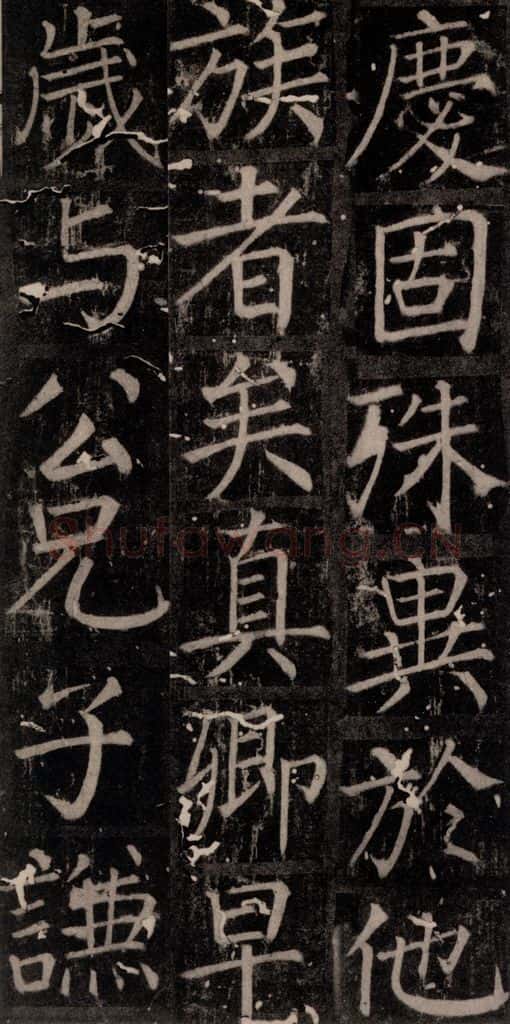 慶固殊異於他
族者矣真卿早
歲与公兄子謙
Shufawang.CN